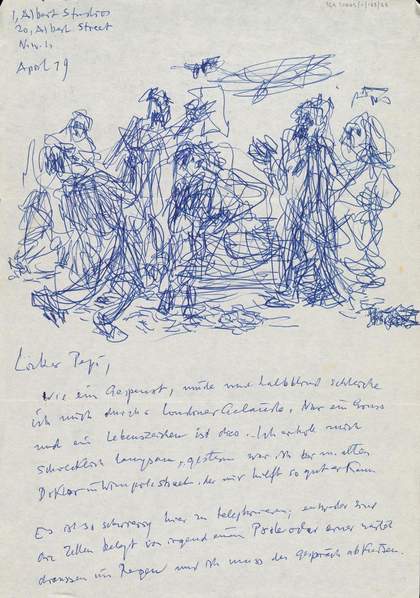 1, Albert Studios
20, Albert Street
N.W.1.
April 79
Lieber Pepi,
Wie ein Gespenst, müde und halbblind schleiche
ich mich durchs Londoner Gelände. Nur ein Gruss
und ein Lebenszeichen ist dies. Ich erhole mich
schrecklich langsam, gestern war ich beim alten
Doktor in Wimpolestreet, der mir hilft so gut er kann
Es ist so schwierig hier zu telephonieren, entweder sind
die Zellen belegt von irgend einem oder einer wartet
draussen im Regen und ich muss das Gespräch abkürzen.